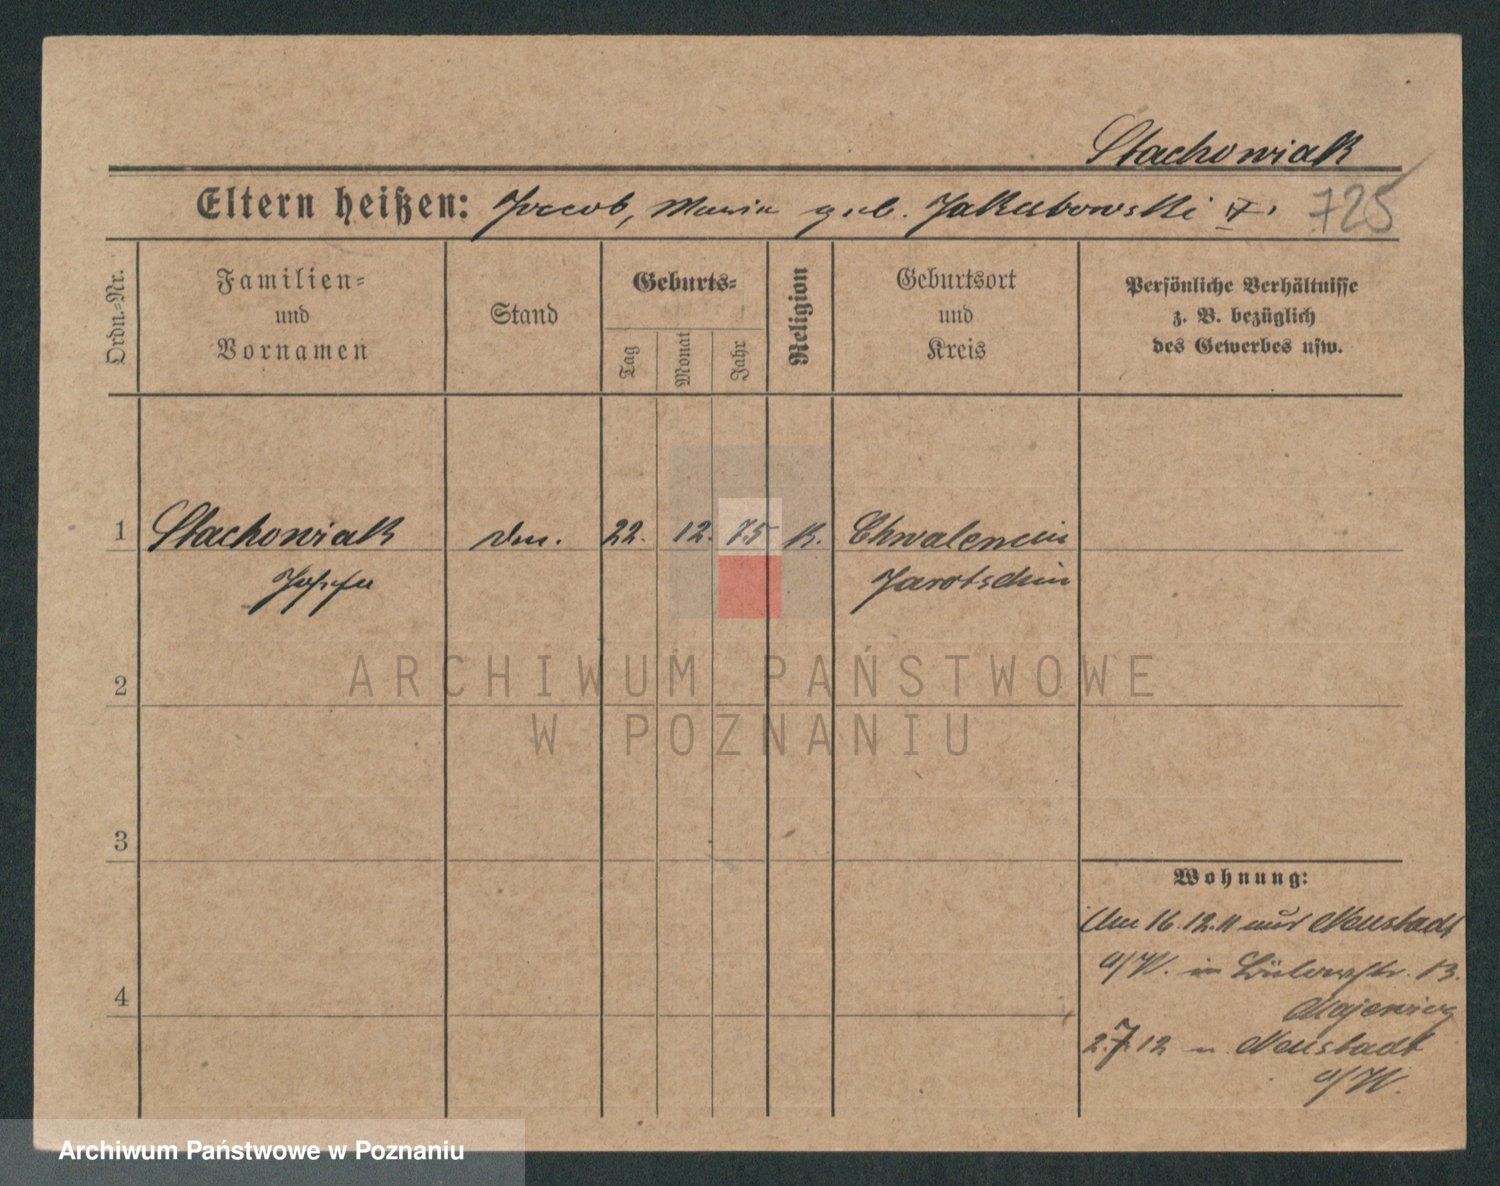 Stachowiak
Eltern heißen: Jacob, Maria geb. Jakubowski
725
Ordn.-Nr.
Familien-
und
Vornamen
Stand
Geburts-
Tag
Monat
Jahr
Religion
Geburtsort
und
Kreis
Persönliche Verhältnisse
z. B. bezüglich
des Gewerbes usw.
1
Stachowiak
22. 12. 75 K.
Chwalencin
Josefa
Jarotschin
2
3
4
Wohnung:
Am 16.12.11 aus Neustadt
a/W. in Bülowstr. 13.
2.7.12 n. Neustadt
a/W.
ARCHIWUM PAŃSTWOWE
W POZNANIU
Archiwum Państwowe w Poznaniu